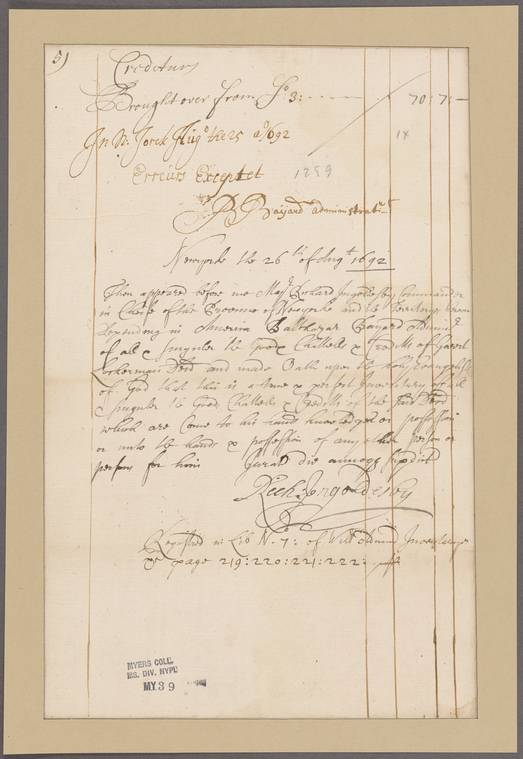 5)
Creditours
Brought over from fo 3: 70:7:—
In N: Yorck Augo the 25 ao 1692
14
Erreurs Exceptet
1259
B Bayard administratr
Newyorke the 26th of Augt 1692
Then appeared before me Majr Richard Ingoldesby Commander
in Cheife of the Province of Newyorke and the Territorys thereon
depending in America Balthazar Bayard Adminr
of all & singuler the Goods Chattells & Creditts of Gavert
Lockerman Decd and made Oath upon the holy Evangelists
of God that this is a true & perfect Inventory of all
& singuler the Goods Chattells & Creditts of the said Decd
which are Come to his hands knowledge or possession
or unto the hands & possession of any other person or
persons for him Jurat die annoqe supdict
Rich: Ingoldesby
Registred in Lib N. 7: of Wills Inventarys
page 219:220:221:222:
MYERS COLL.
MS. DIV. NYPL
MY 39